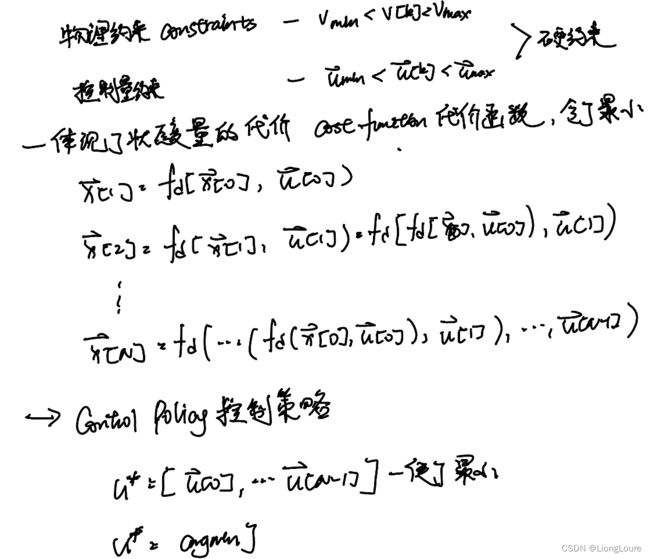 物理约束 constraints — Vmin < V[k] ≤ Vmax
控制量约束 — u⃗min < u⃗[k] < u⃗max > 硬约束
— 体现了状态量的代价 cost function 代价函数, 令J最小
x⃗[1] = fd[x⃗[0], u⃗[0])
x⃗[2] = fd[x⃗[1], u⃗[1]) = fd[fd[x⃗[0], u⃗[0]), u⃗[1])
⋮
x⃗[N] = fd(⋯(fd(x⃗[0], u⃗[0]), u⃗[1]), ⋯, u⃗[N-1])
→ Control Policy 控制策略
u* = [u⃗[0], ⋯ u⃗[N-1]] — 使J最小
u* = argmin J
CSDN @LiongLoure